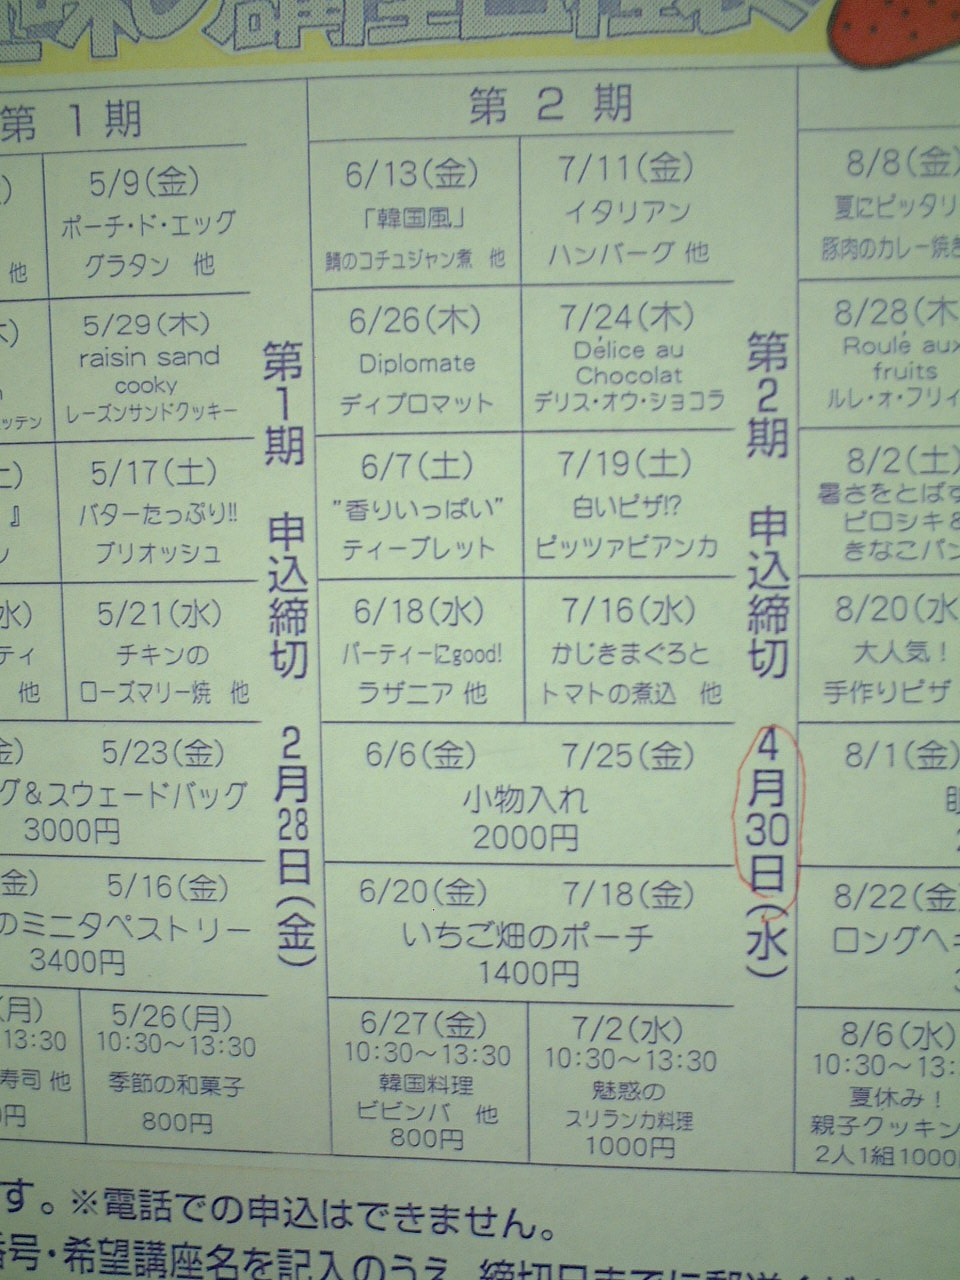 第 1 期
5/9(金)
ポーチ・ド・エッグ
グラタン 他
他
5/29(木)
raisin sand
cooky
レーズンサンドクッキー
ッテン
5/17(土)
バターたっぷり!!
ブリオッシュ
』
5/21(水)
チキンの
ローズマリー焼 他
ティ
他
5/23(金)
グ&スウェードバッグ
3000円
金)
5/16(金)
のミニタペストリー
3400円
(月)
13:30
寿司 他
円
5/26(月)
10:30〜13:30
季節の和菓子
800円
第1期 申込締切 2月28日(金)
第 2 期
6/13(金)
「韓国風」
鯖のコチュジャン煮 他
7/11(金)
イタリアン
ハンバーグ 他
6/26(木)
Diplomate
ディプロマット
7/24(木)
Délice au
Chocolat
デリス・オウ・ショコラ
6/7(土)
"香りいっぱい"
ティーブレット
7/19(土)
白いピザ!?
ピッツァビアンカ
6/18(水)
パーティーにgood!
ラザニア 他
7/16(水)
かじきまぐろと
トマトの煮込 他
6/6(金) 7/25(金)
小物入れ
2000円
6/20(金) 7/18(金)
いちご畑のポーチ
1400円
6/27(金)
10:30〜13:30
韓国料理
ビビンバ 他
800円
7/2(水)
10:30〜13:30
魅惑の
スリランカ料理
1000円
第2期 申込締切 4月30日(水)
8/8(金)
夏にピッタリ
豚肉のカレー焼き
8/28(木
Roulé aux
fruits
ルレ・オ・フリイ
8/2(土)
暑さをとばす
ピロシキ&
きなこパン
8/20(水
大人気!
手作りピザ
8/1(金)
8/22(金)
ロングヘ
8/6(水)
10:30〜13:
夏休み!
親子クッキン
2人1組1000
す。※電話での申込はできません。
番号・希望講座名を記入のうえ、締切日までに郵送